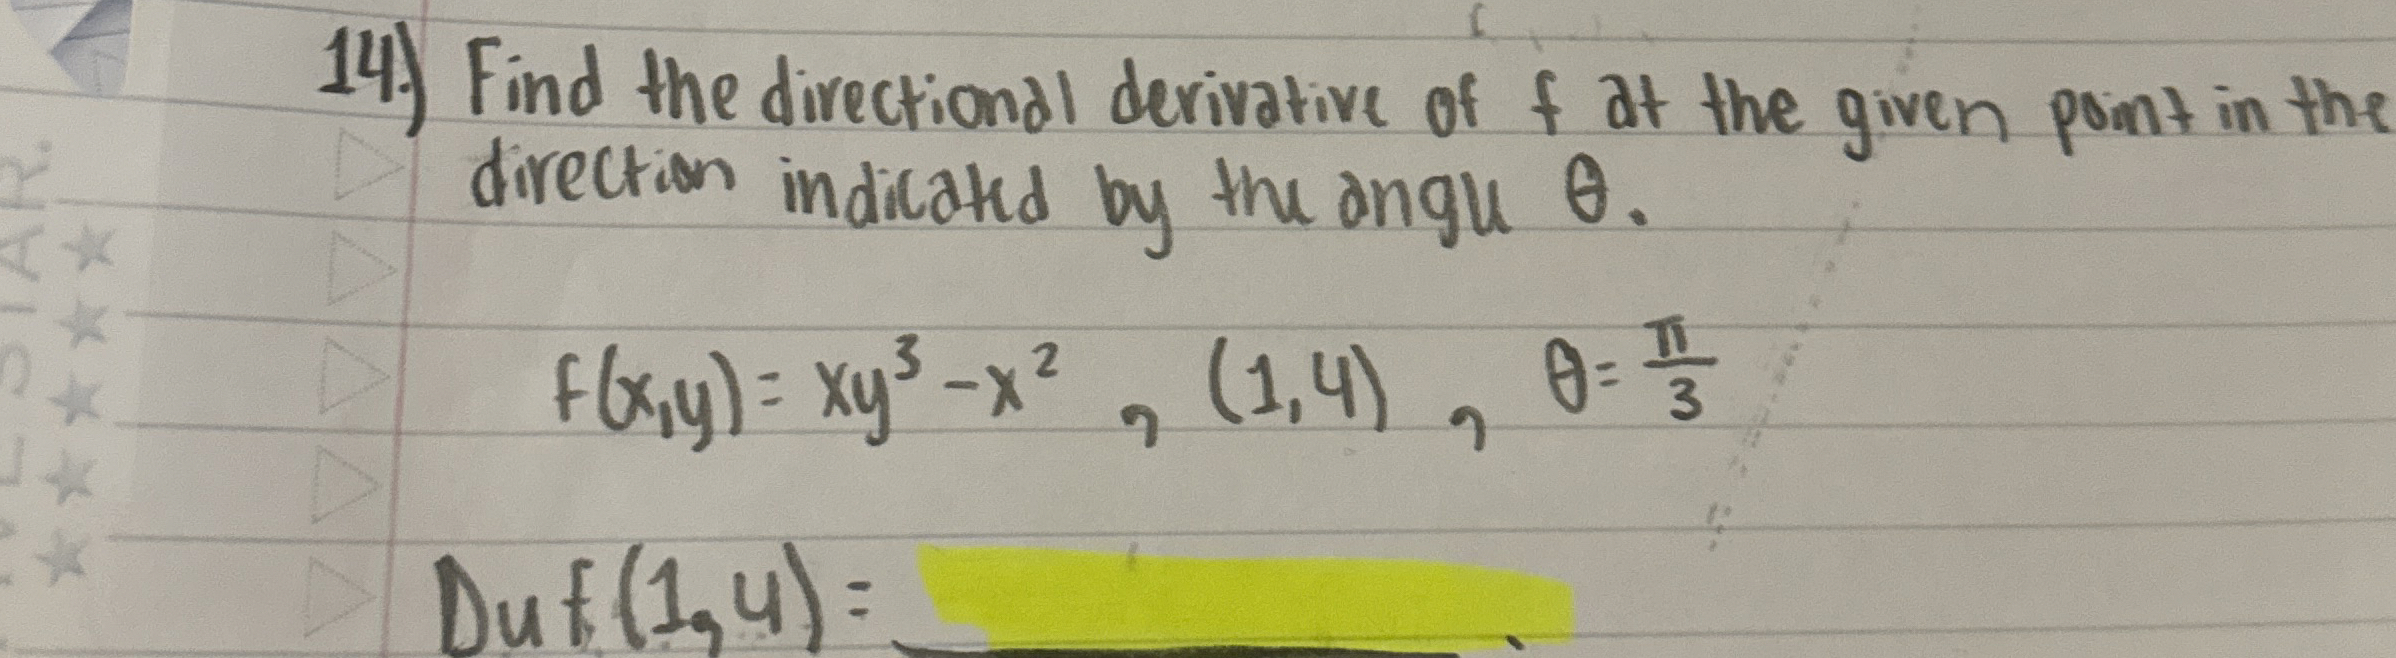 14.) Find the directional derivative of f at the given point in the
direction indicated by the angle θ.
f(x,y) = xy³ - x² , (1,4) , θ = π/3
Duf(1,4) =